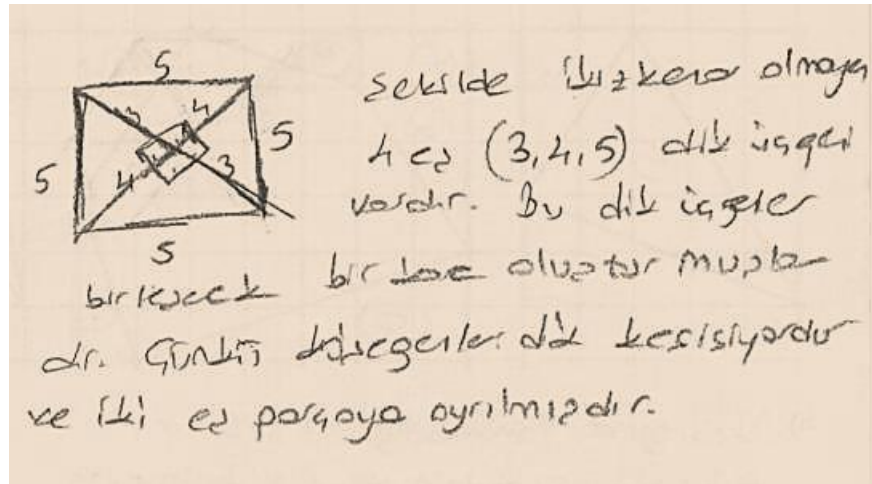 5
3 4
5 5
4 3
5
Şekilde ikizkenar olmayan
4 eş (3,4,5) dik üçgeni
vardır. Bu dik üçgenler
birleşecek bir kare oluşturmuşlar
dır. Çünkü köşegenler dik kesişiyordur
ve iki eş parçaya ayrılmışdır.